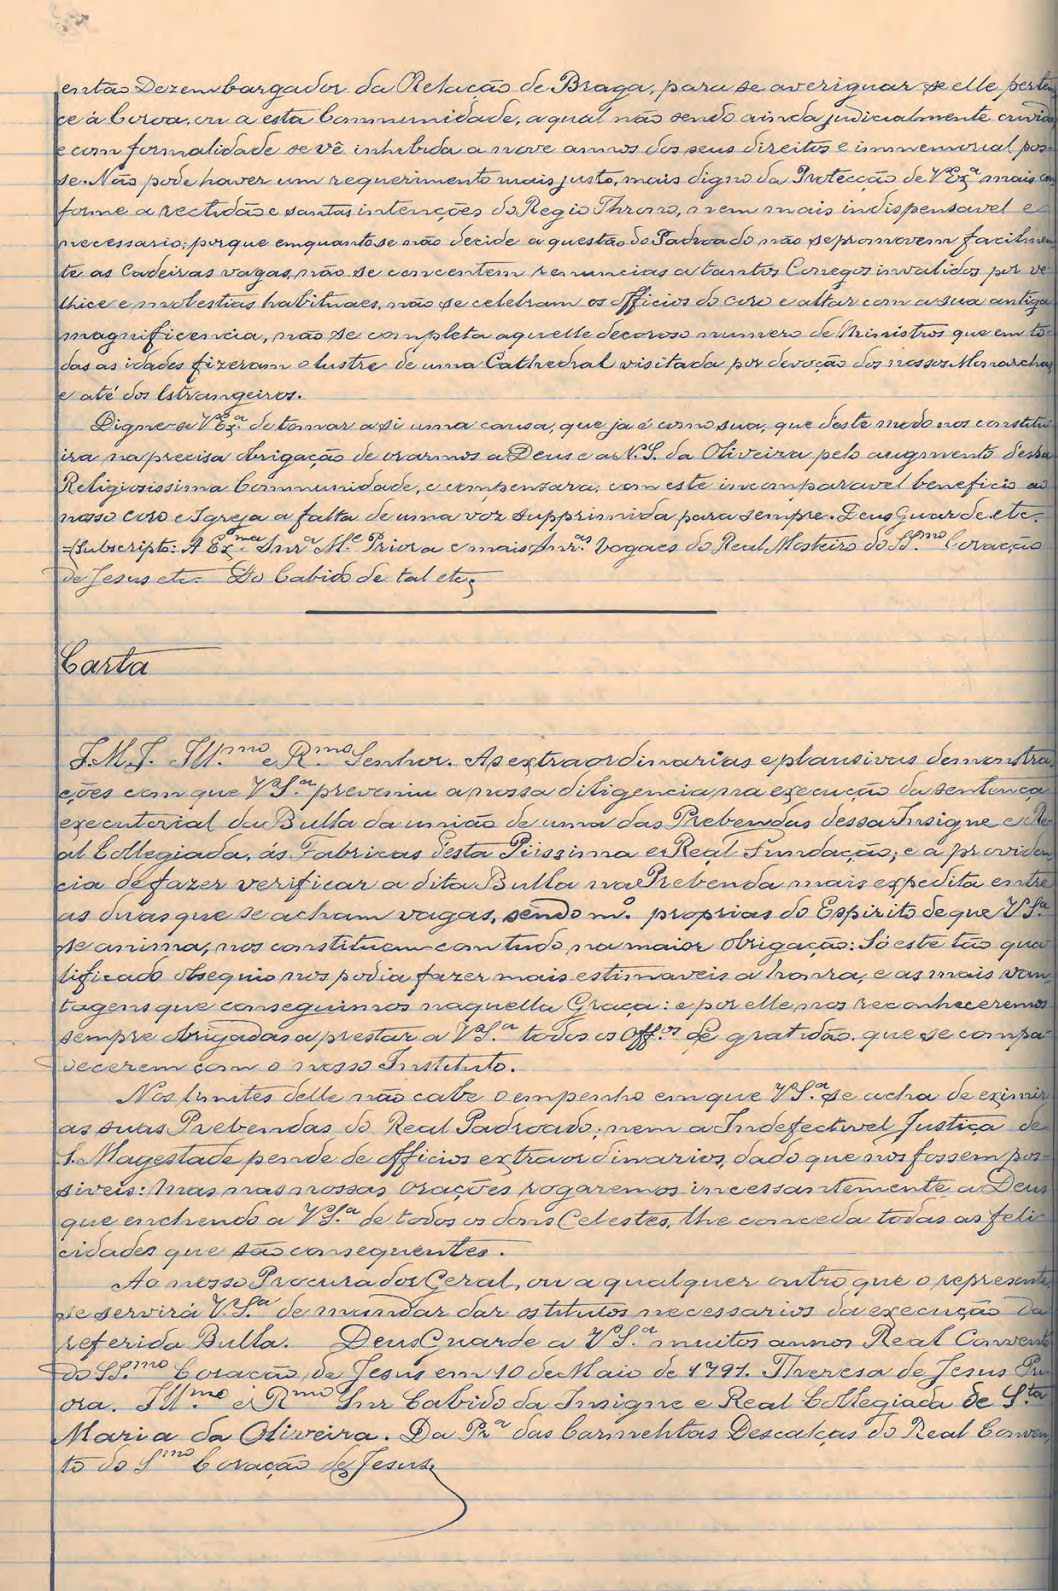 então Dezembargador da Relação de Braga, para se averiguar se elle perten
ce á Coroa, ou a esta Communidade, a qual não sendo ainda judicialmente ouvida
e com formalidade se vê inhibida a nove annos dos seus direitos e immemorial pos-
se. Não pode haver um requerimento mais justo, mais digno da Protecção de V. Exª mais con
forme a rectidão e santas intenções do Regio Throno, nem mais indispensavel e
necessario; porque emquanto se não decide a questão do Padroado não se promovem facilmen
te as Cadeiras vagas, não se concentem renuncias a tantos Conegos invalidos por ve
lhice e molestias habituaes, não se celebram os officios do coro e altar com a sua antiga
magnificencia, não se completa aquelle decoroso numero de Ministros que em to-
das as idades fizeram o lustre de uma Cathedral visitada por devoção dos nossos Monarchas
e até dos Estrangeiros.
Digne-se V. Exª. de tomar a si uma causa, que já é como sua, que deste modo nos constitu-
irá na precisa obrigação de orarmos a Deus e a N. S. da Oliveira pelo augmento dessa
Religiosissima Communidade, e compenzara, com este incomparavel beneficio ao
nosso coro e Igreja a falta de uma voz supprimida para sempre. Deus Guarde etc.
=Subscripto: A Ex.ma Snrª M.e Priora e mais Snr.as Vogaes do Real Mosteiro do S.mo Coração
de Jesus etc. Do Cabido de tal etc.
Carta
J. M. J. Ill.mo e R.mo Senhor. As extraordinarias e plausivas demonstra
ções com que V. S.ª preveniu a nossa diligencia na execução da sentença
executorial da Bulla da união de uma das Prebendas dessa Insigne e Re
al Collegiada, ás Fabricas desta Piissima e Real Fundação, e a providen
cia de fazer verificar a dita Bulla na Prebenda mais expedita entre
as duas que se acham vagas, sendo m.o proprias do Espirito de que V. S.ª
se anima, nos constituem com tudo na maior obrigação: Só este tão qua
lificado obsequio nos podia fazer mais estimaveis a honra, e as mais van
tagens que conseguimos naquella Graça: e por elle nos reconheceremos
sempre obrigadas a prestar a V. S.ª todos os Off.os de gratidão que se compa-
decerem com o nosso Instituto.
Nos limites delle não cabe o empenho em que V. S.ª se acha de eximir
as suas Prebendas do Real Padroado; nem a Indefectivel Justiça de
S. Magestade pende de officios extraordinarios, dado que nos fossem pos-
siveis: Mas nas nossas orações rogaremos incessantemente a Deus
que enchendo a V. S.ª de todos os dons Celestes, lhe conceda todas as feli-
cidades que são consequentes.
Ao nosso Procurador Geral, ou a qualquer outro que o represente,
se servirá V. S.ª de mandar dar os titulos necessarios da execução da
referida Bulla. Deus Guarde a V. S.ª muitos annos Real Convento
do SS.mo Coração de Jesus em 10 de Maio de 1791. Theresa de Jesus Pri-
ora. Ill.mo e R.mo Snr Cabido da Insigne e Real Collegiada de S.ta
Maria da Oliveira. Da Prª das Carmelitas Descalças do Real Conven
to do S.mo Coração de Jesus